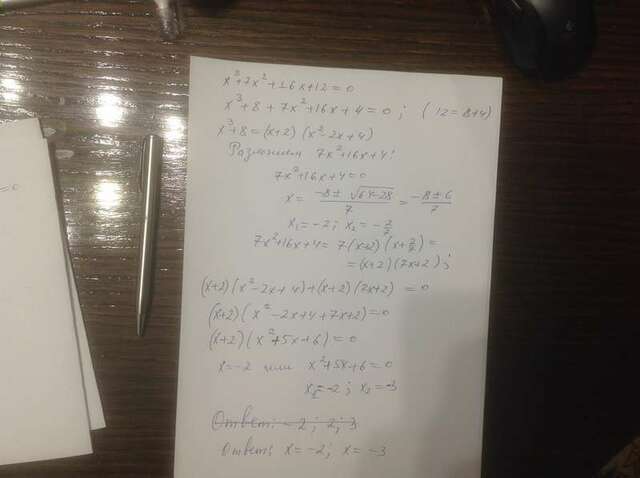 x³+7x²+16x+12=0
x³+8+7x²+16x+4=0; (12=8+4)
x³+8=(x+2)(x²-2x+4)
Разложим 7x²+16x+4:
7x²+16x+4=0
x= (-8±√(64-28))/7 = (-8±6)/7
x₁=-2; x₂=-2/7
7x²+16x+4=7(x+2)(x+2/7)=
=(x+2)(7x+2);
(x+2)(x²-2x+4)+(x+2)(7x+2)=0
(x+2)(x²-2x+4+7x+2)=0
(x+2)(x²+5x+6)=0
x=-2 или x²+5x+6=0
x₁=-2; x₂=-3
Ответ: -2; 2; 3
Ответ: x=-2; x=-3
=0